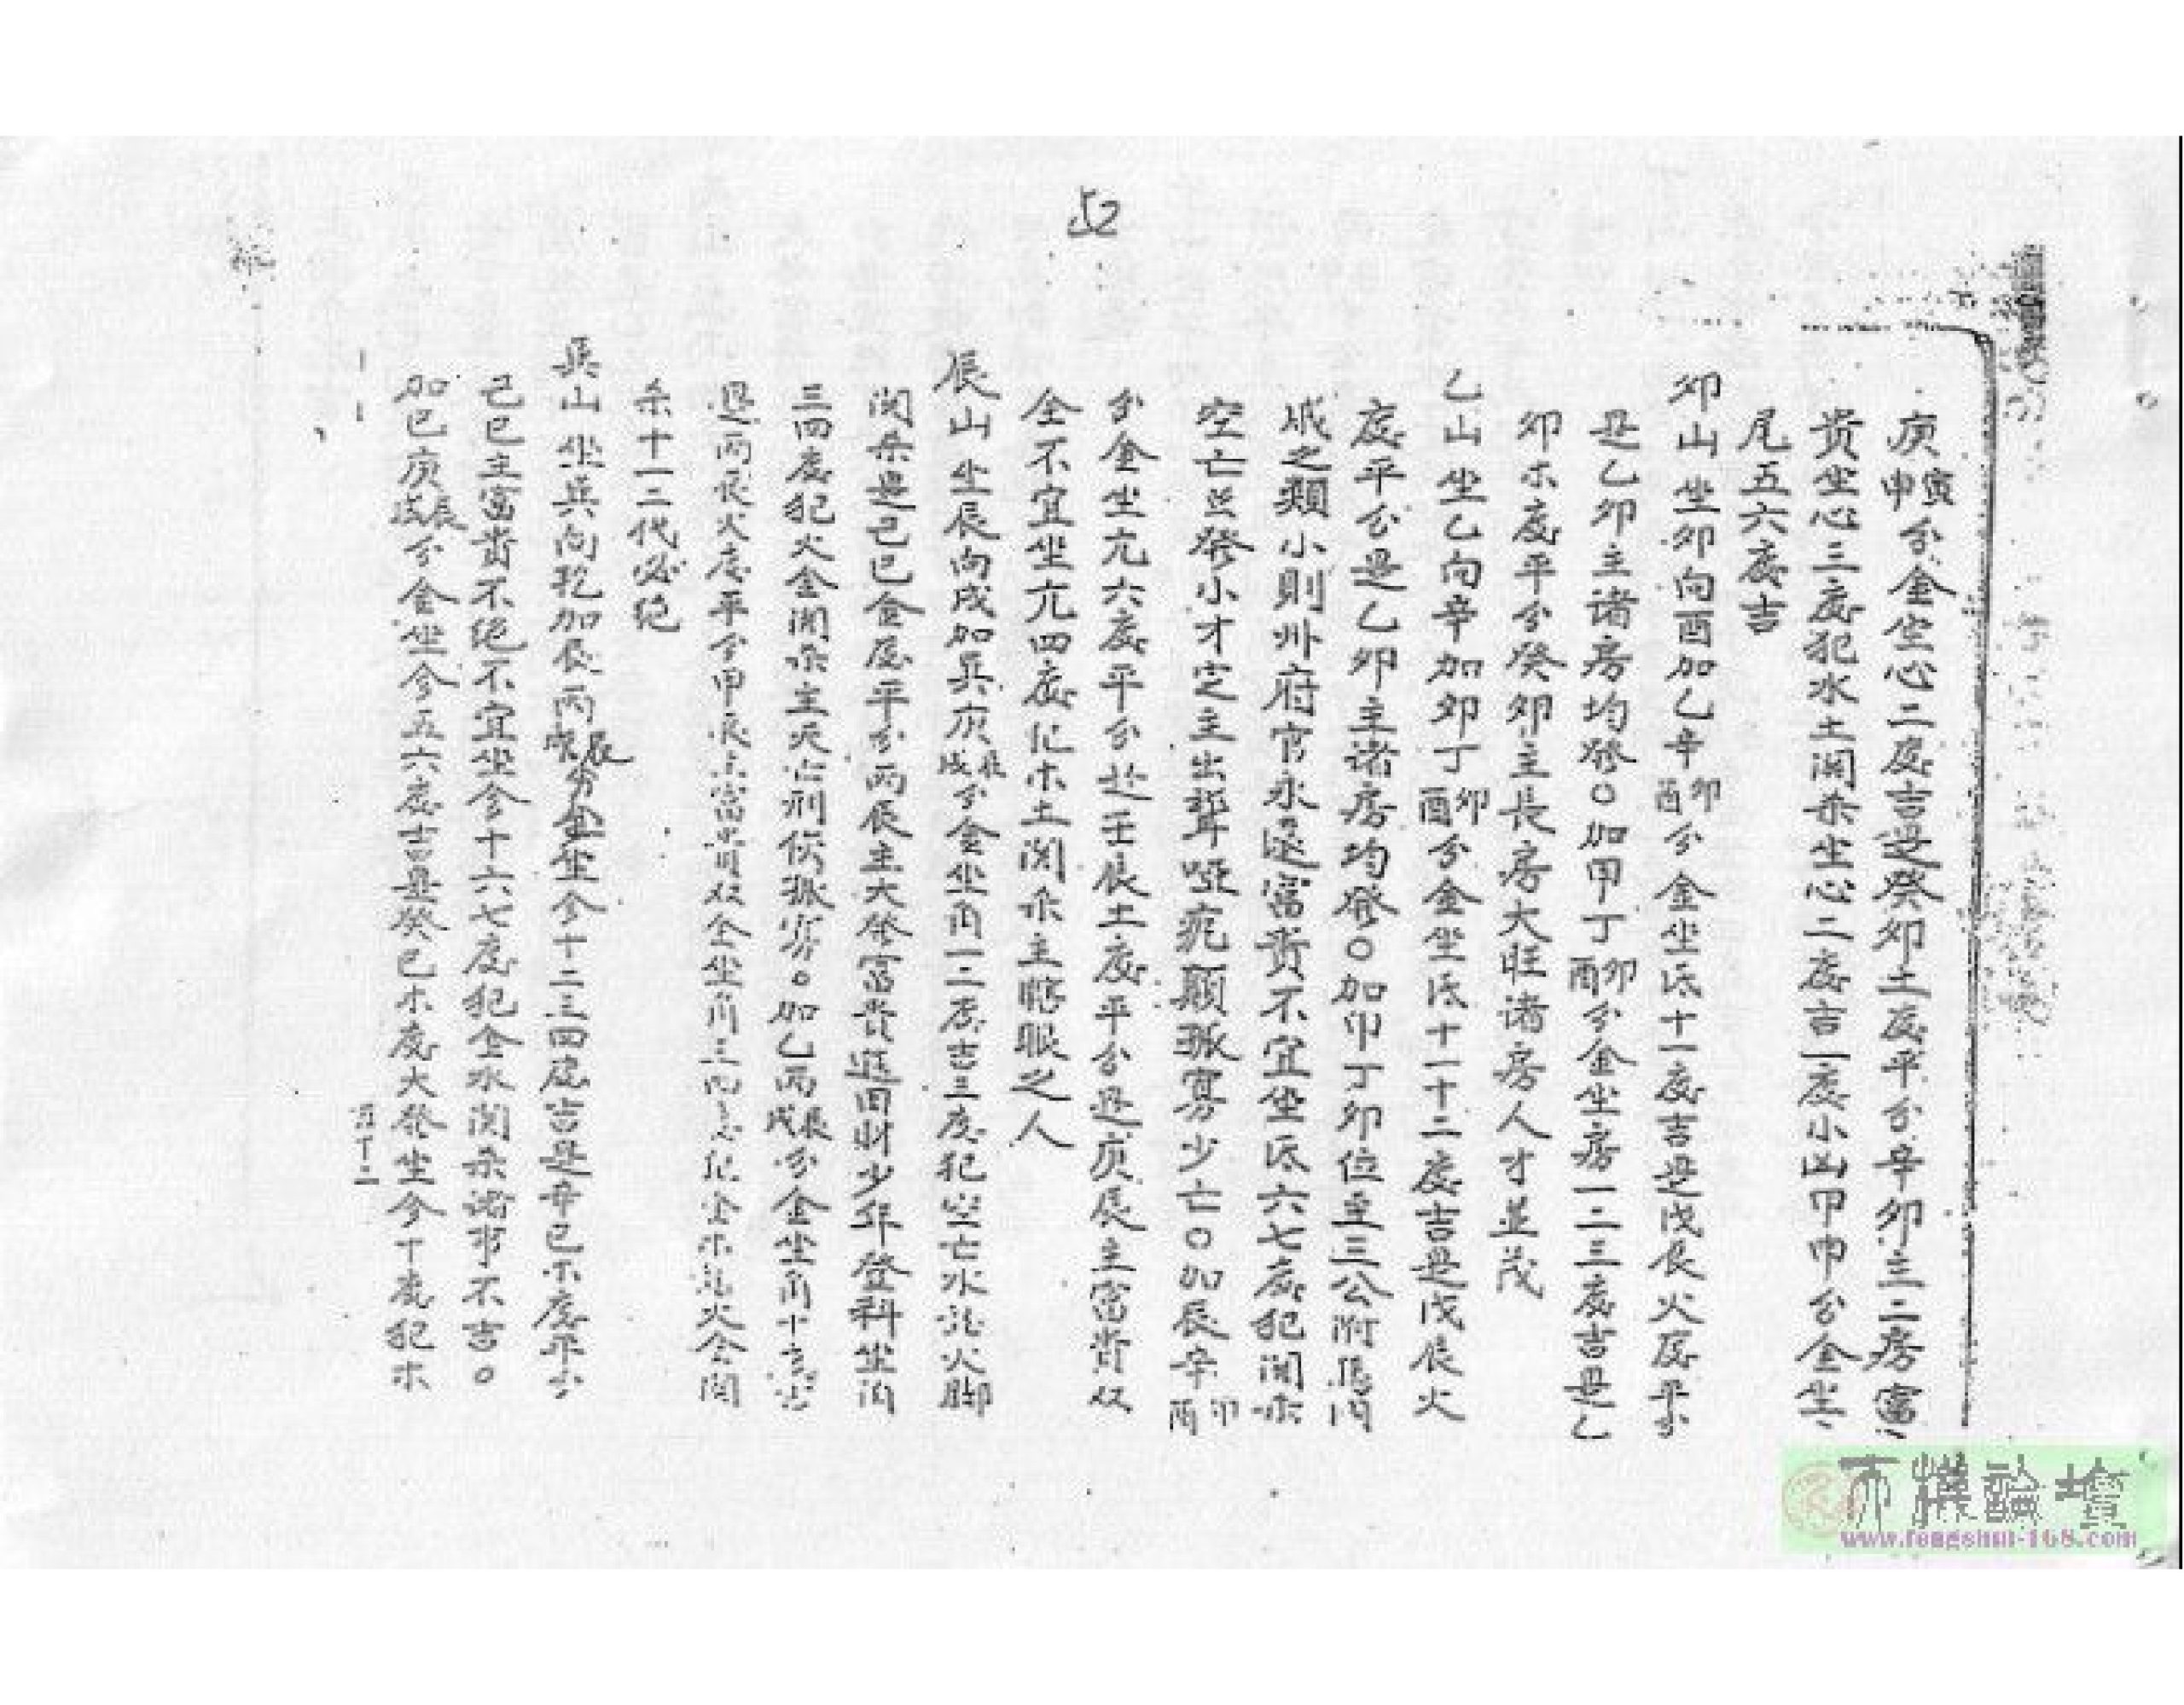 52
庚寅申分金坐心二度吉是癸卯土度平分辛卯主二房富
贵坐心三度犯水土関杀坐心二度吉一度小凶甲申分金坐
尾五六度吉
卯山坐卯向酉加乙辛卯酉分金坐氐十一度吉是戊辰火度平分
是乙卯主诸房均發〇加甲丁卯酉分金坐房一二三度吉是乙
卯木度平分癸卯主長房大旺诸房人才並茂
乙山坐乙向辛加卯丁卯酉分金坐氐十一十二度吉是戊辰火
度平分是乙卯主诸房均發〇加丁卯位至三公附馬囯
戚之類小則州府官永遠富贵不宜坐氐六七度犯関杀
空亡豈發小才定主出聋啞疤顛孤寡少亡〇加辰辛卯酉
分金坐亢六度平分壬辰土度平分是庚辰主富贵双
全不宜坐亢四度犯木土関杀主瞎眼之人
辰山坐辰向戌加巽庚戌分金坐角一二度吉三度犯空亡水火脚
関杀是己巳金度平分丙辰主大發富贵進田財少年登科坐角
三四度犯火金関杀主刑孤寡〇加乙丙辰戌分金坐角十
是丙辰火度平分甲辰富贵双全坐角三四度犯金木火金関
杀十一二代必绝
巽山坐巽向乾加辰丙辰分金坐今十二三四度吉是辛巳木度平分
己巳主富贵不绝不宜坐今十六七度犯金水関杀诸事不吉〇
加巳庚辰戌分金坐今五六度吉是癸巳木度大發坐今十度犯木
天機論壇
www.fengshui-168.com